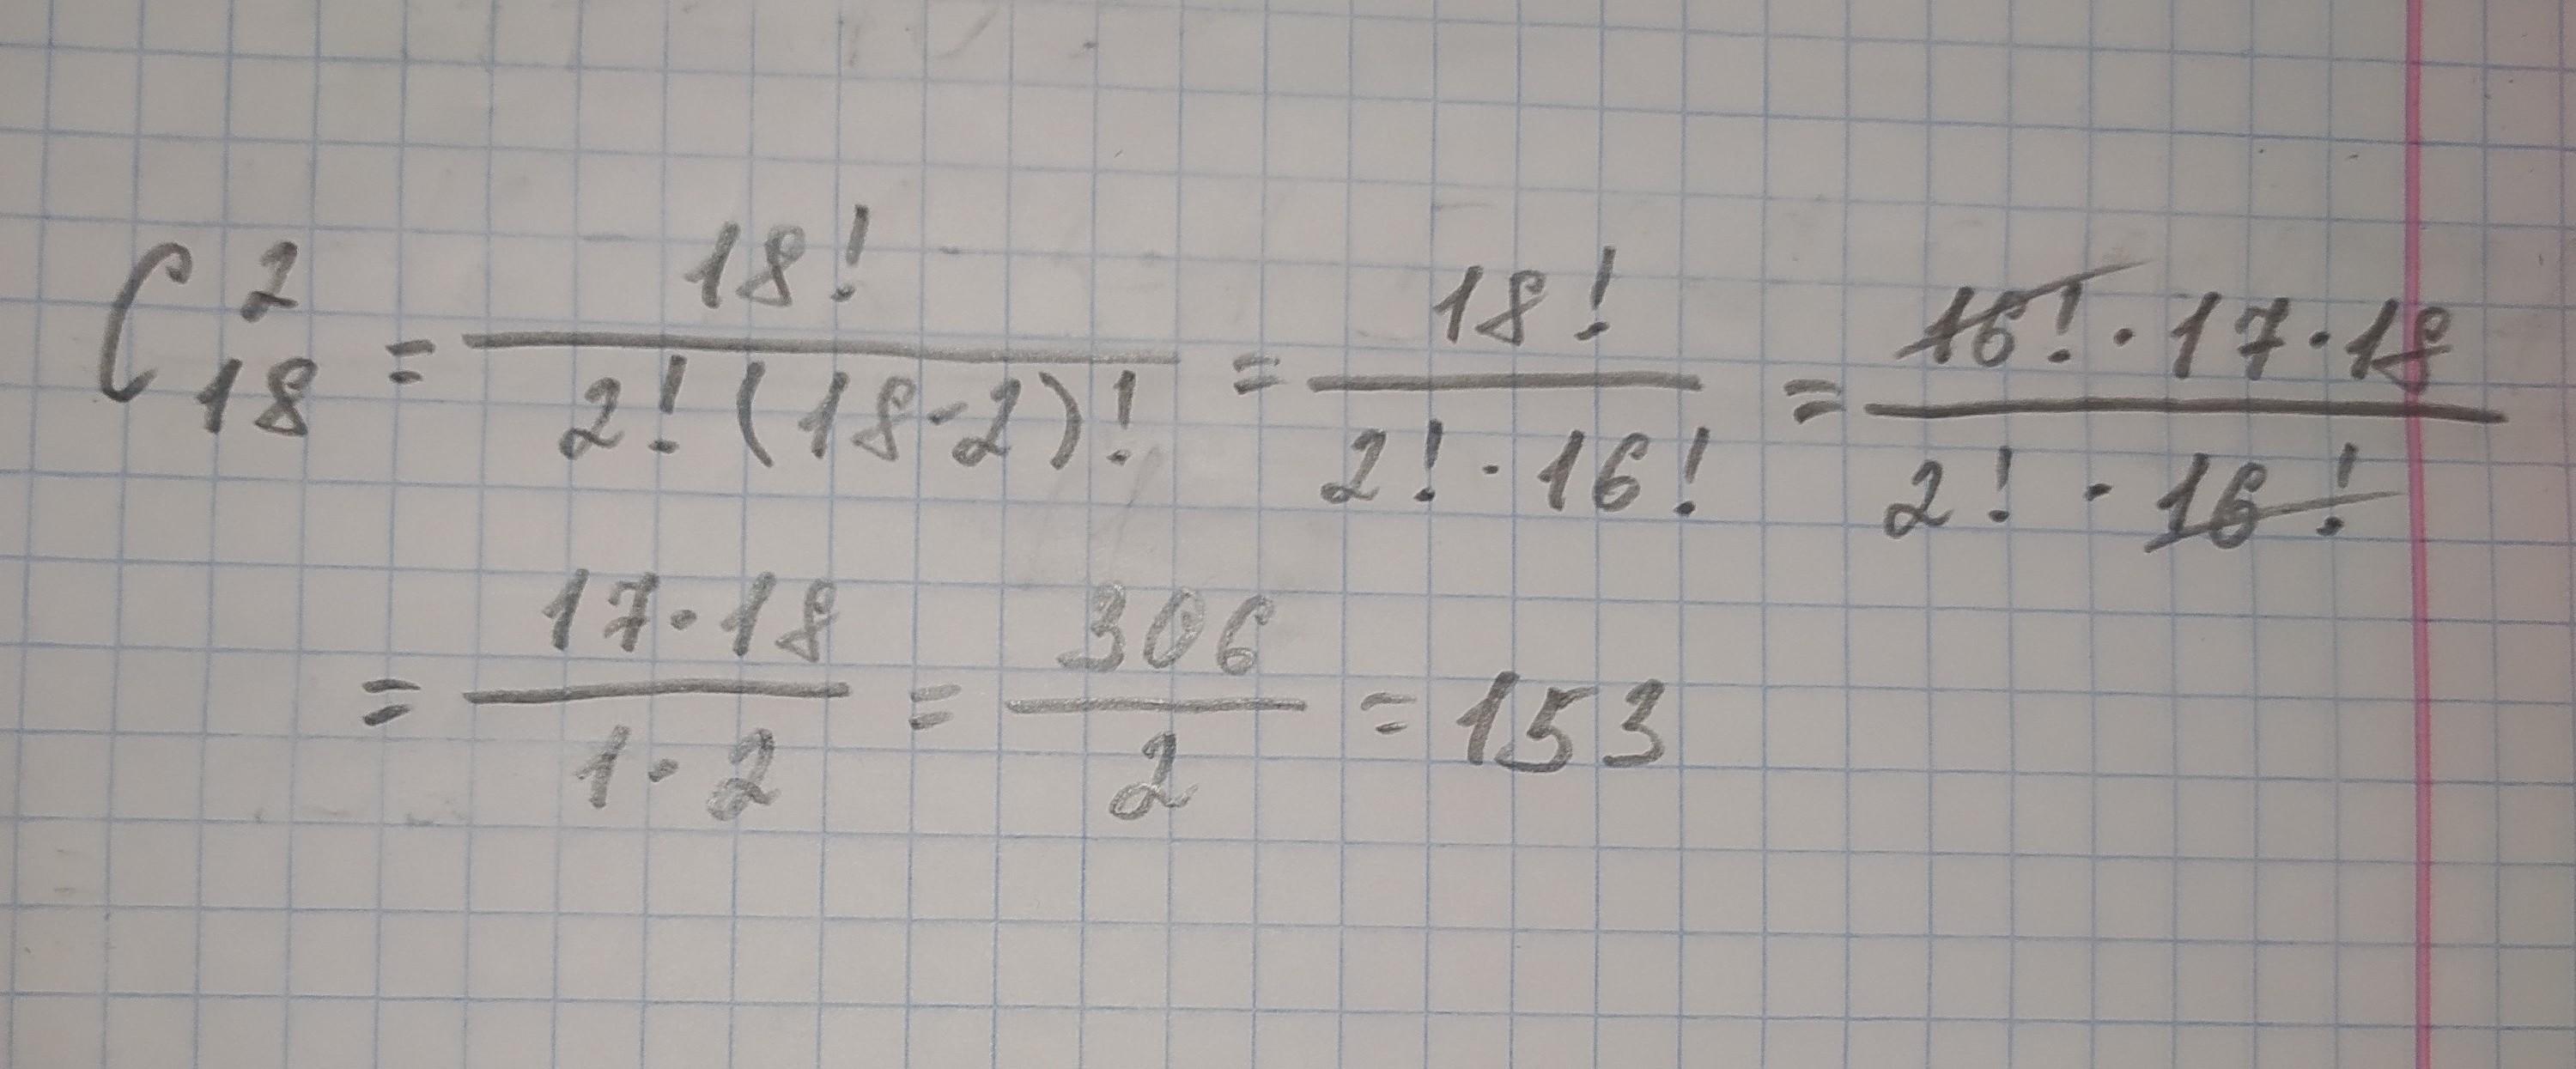 C_{18}^{2} = \frac{18!}{2!(18-2)!} = \frac{18!}{2! \cdot 16!} = \frac{16! \cdot 17 \cdot 18}{2! \cdot 16!}
= \frac{17 \cdot 18}{1 \cdot 2} = \frac{306}{2} = 153